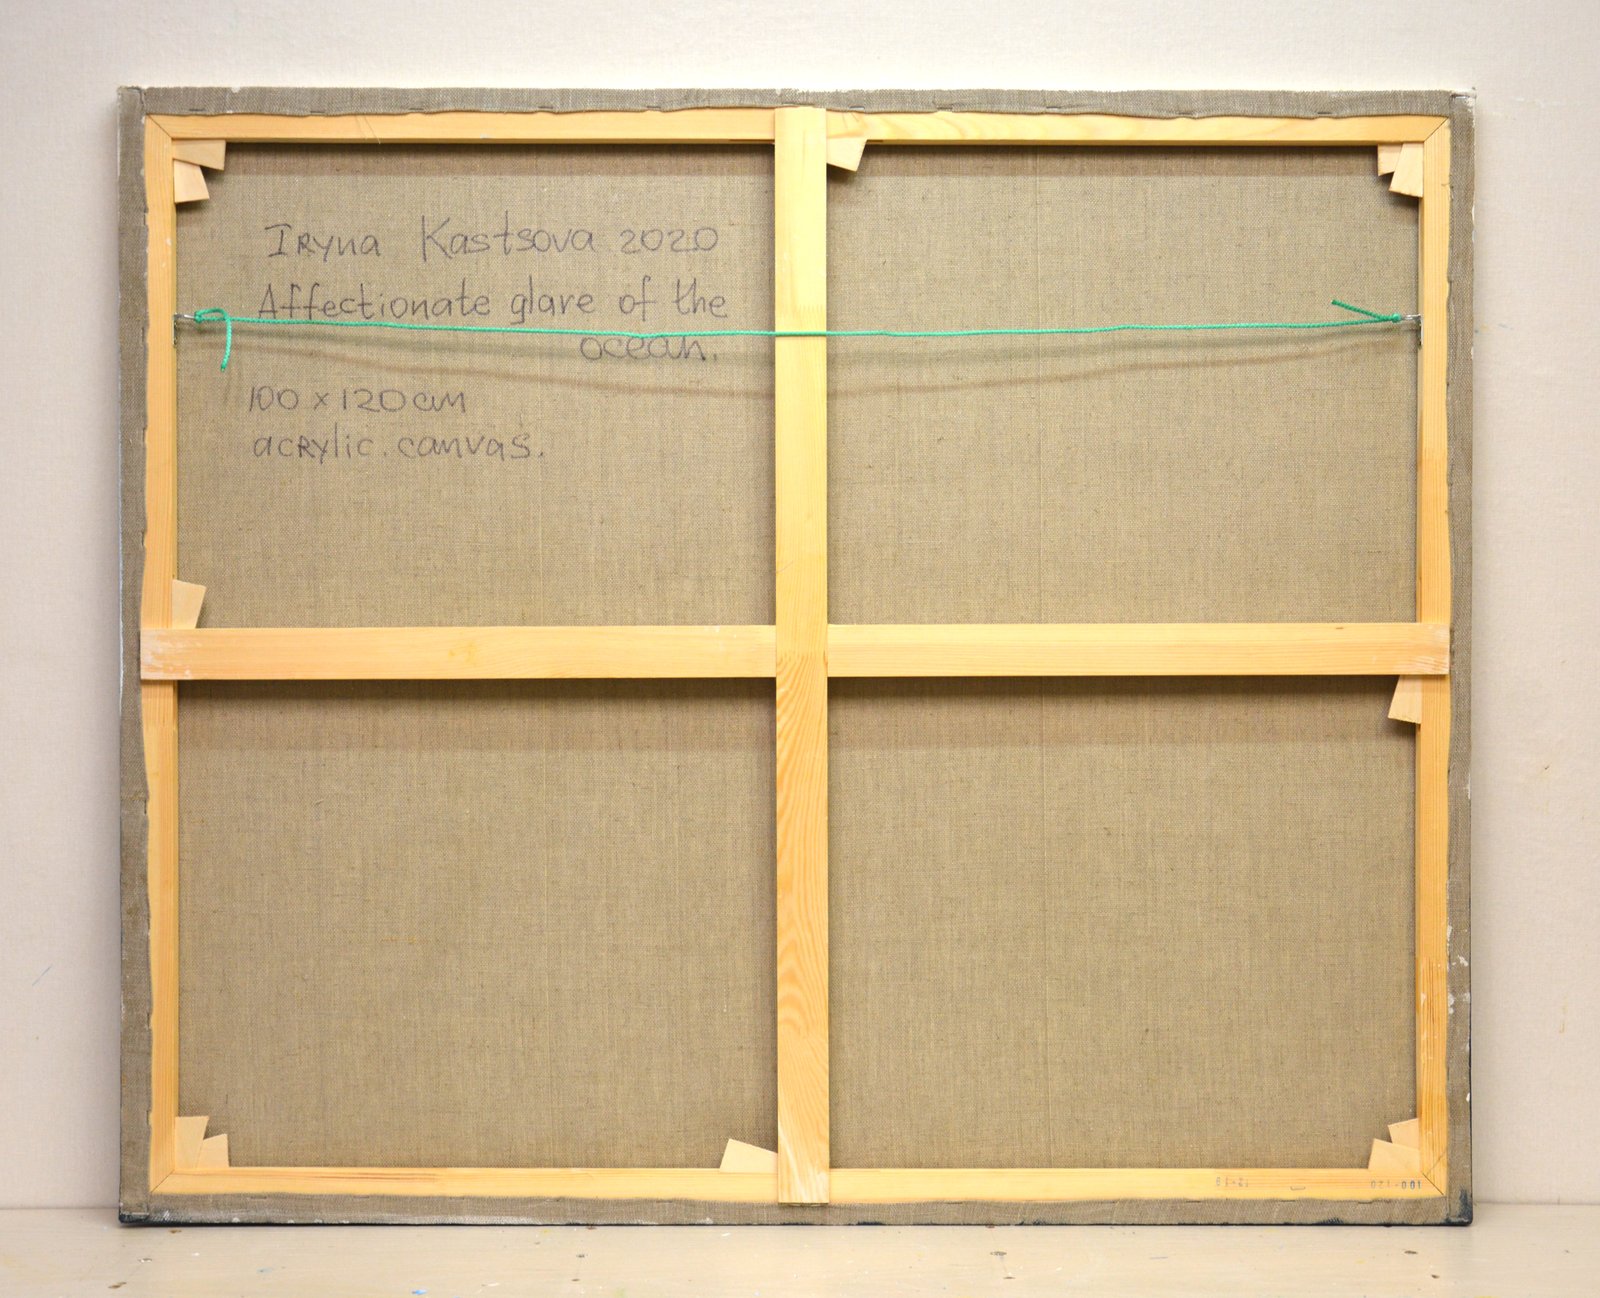 Iryna Kastsova 2020
Affectionate glare of the
ocean.
100 x 120 cm
acrylic. canvas.
100-120